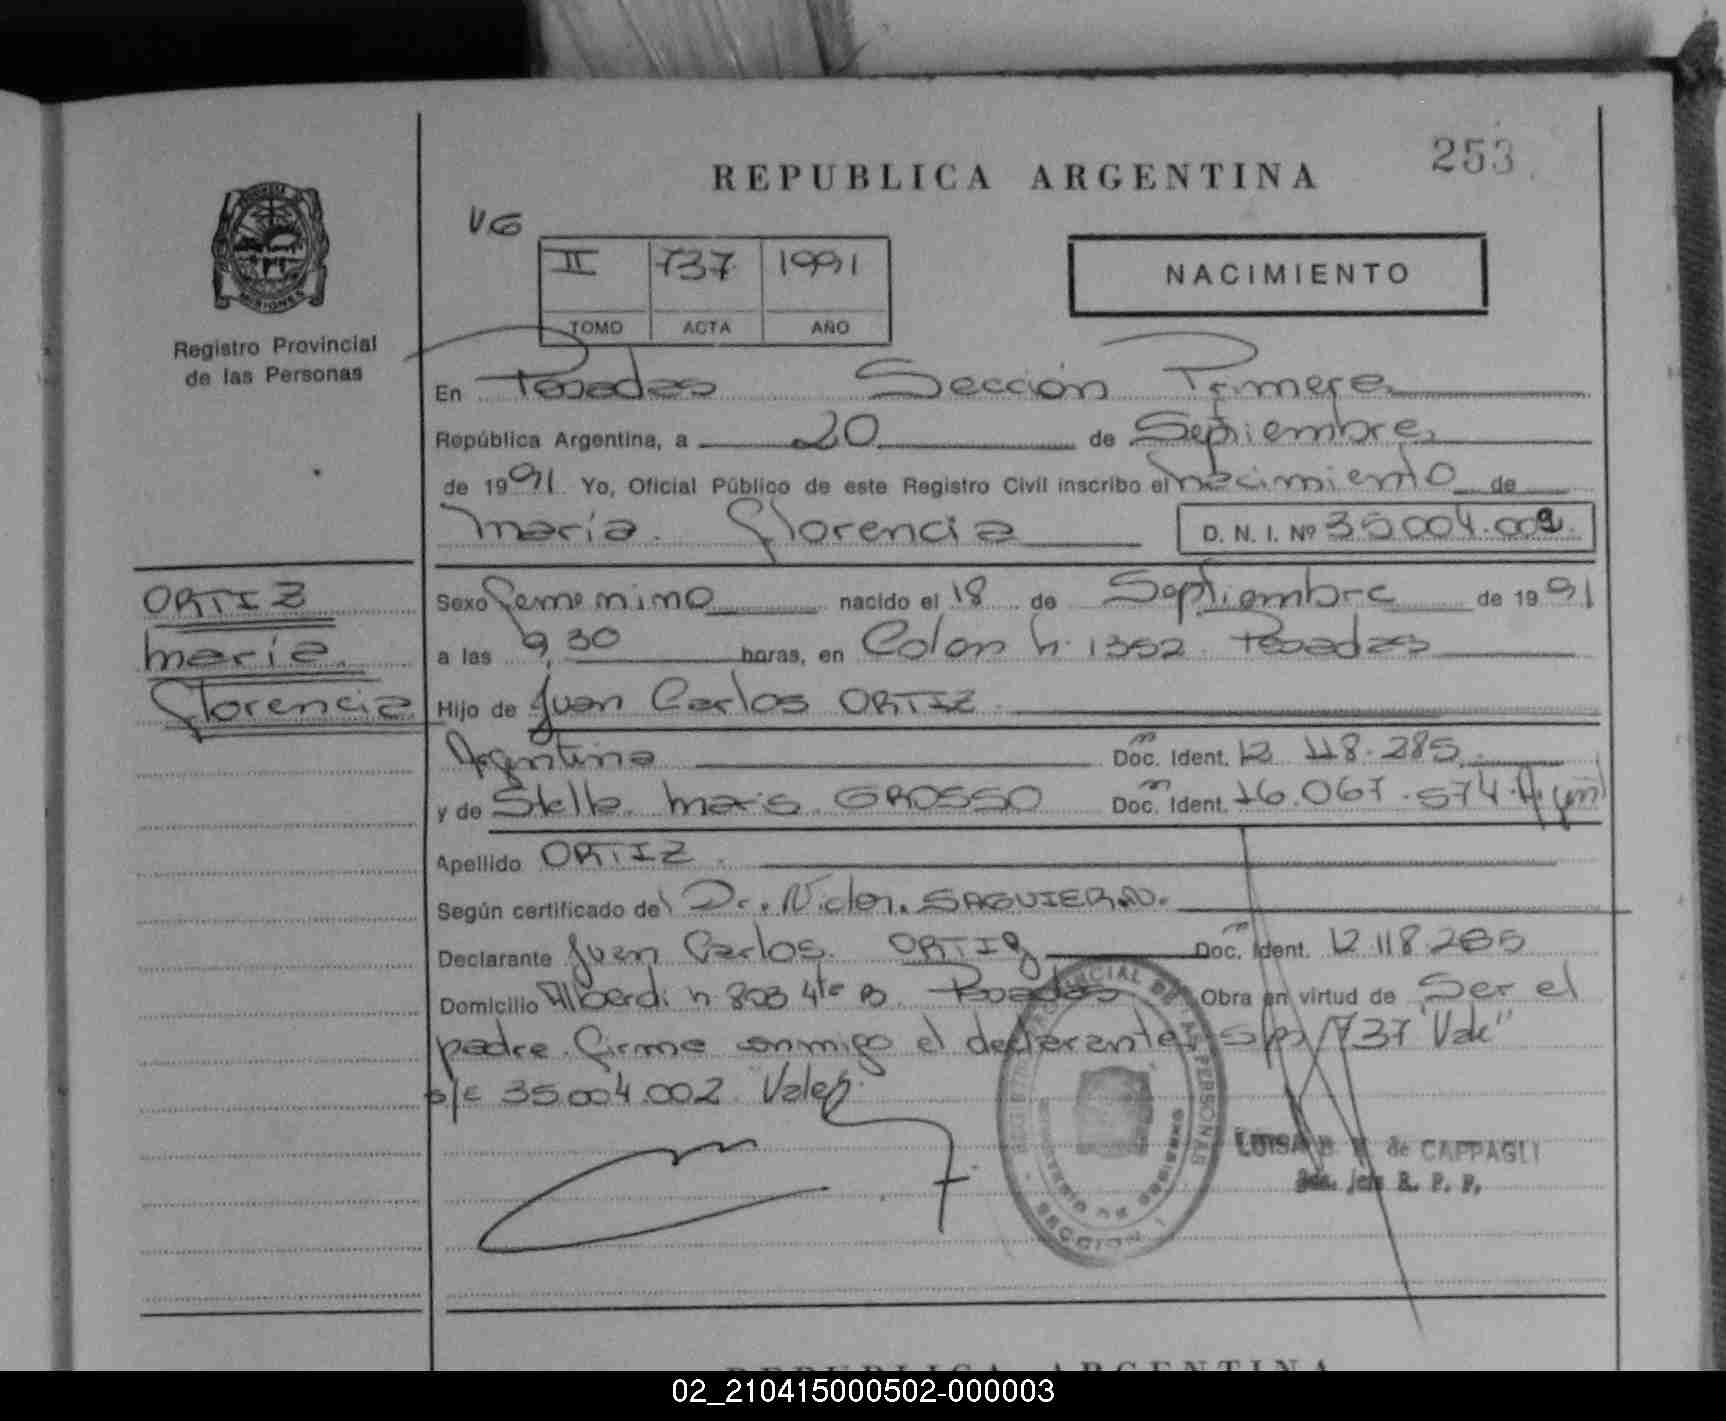 253
REPUBLICA ARGENTINA
VG
II 737 1991
TOMO ACTA AÑO
NACIMIENTO
MISIONES
Registro Provincial
de las Personas
En Posadas Sección Primera
República Argentina, a 20 de Septiembre
de 1991 Yo, Oficial Público de este Registro Civil inscribo el nacimiento de
María Florencia D. N. I. Nº 35.004.002
ORTIZ
María
Florencia
Sexo Femenino nacido el 18 de Septiembre de 1991
a las 9,30 horas, en Colon n. 1352 Posadas
Hijo de Juan Carlos ORTIZ
Argentina Doc. Ident. 12.118.285
y de Stella Maris GROSSO Doc. Ident. 16.067.574
Apellido ORTIZ
Según certificado del Dr. Victor
Declarante Juan Carlos ORTIZ Doc. Ident. 12.118.285
Domicilio Alberdi n 803 4te B Posadas Obra en virtud de Ser el
padre. Firma conmigo el declarante, s/p/737 "Vale"
s/c 35.004.002 Vale
REGISTRO PROVINCIAL DE LAS PERSONAS
SECCION 1
LUISA B. de CAPPAGLI
Jefe R. P. P.
REPUBLICA ARGENTINA
02_210415000502-000003